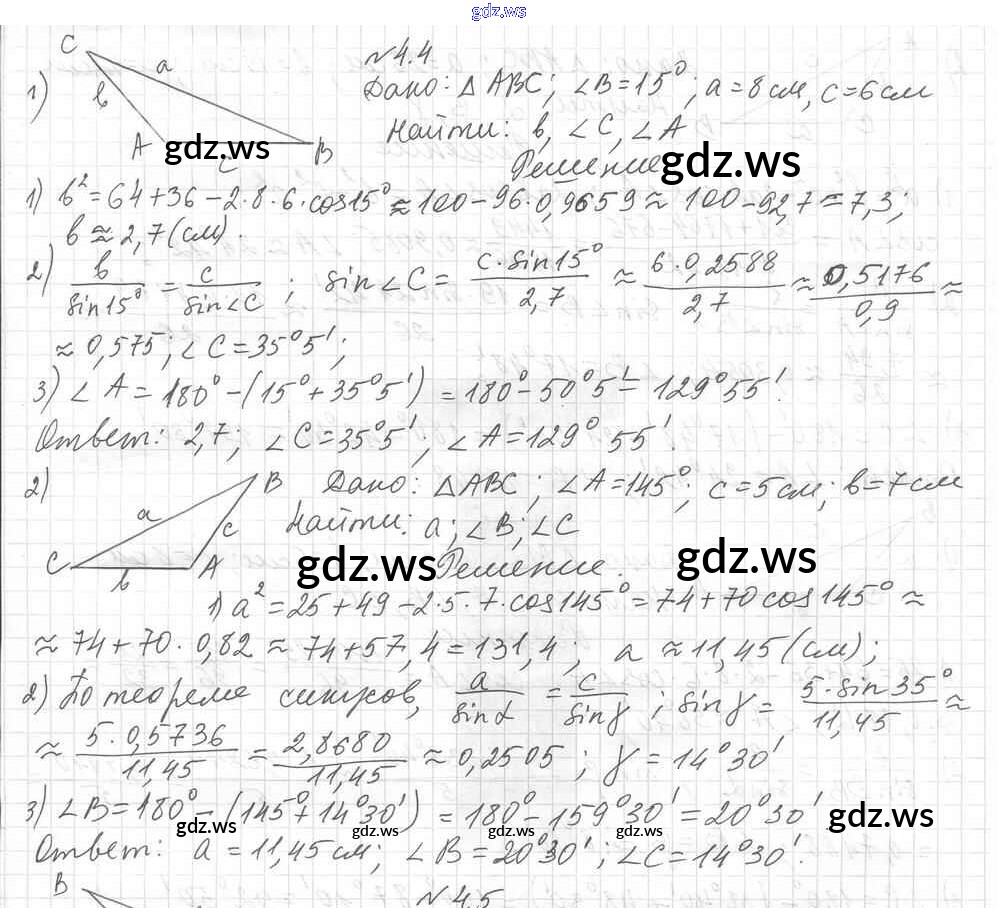 gdz.ws
№4.4
1) C a b A c B
Дано: △ ABC; ∠B=15°; a=8см, c=6см
Найти: b, ∠C, ∠A
gdz.ws
Решение gdz.ws
1) b²=64+36-2·8·6·cos15°≈100-96·0,9659≈100-92,7=7,3;
b≈2,7(см).
2) b/sin15° = c/sin∠C; sin∠C = c·sin15°/2,7 ≈ 6·0,2588/2,7 ≈ 0,5176/0,9 ≈
≈0,575; ∠C=35°5';
3) ∠A=180°-(15°+35°5')=180°-50°5'=129°55'.
Ответ: 2,7; ∠C=35°5'; ∠A=129°55'.
2) B a c C b A
Дано: △ABC; ∠A=145°; c=5см; b=7см
Найти: a; ∠B; ∠C
gdz.ws Решение. gdz.ws
1) a²=25+49-2·5·7·cos145°=74+70cos145°≈
≈74+70·0,82≈74+57,4=131,4, a≈11,45(см);
2) По теореме синусов, a/sinα = c/sinγ; sinγ = 5·sin35°/11,45 ≈
≈ 5·0,5736/11,45 = 2,8680/11,45 ≈0,2505; γ=14°30'
3) ∠B=180°-(145°+14°30')=180°-159°30'=20°30'
gdz.ws gdz.ws gdz.ws gdz.ws gdz.ws
Ответ: a=11,45см; ∠B=20°30'; ∠C=14°30'.
B №4.5